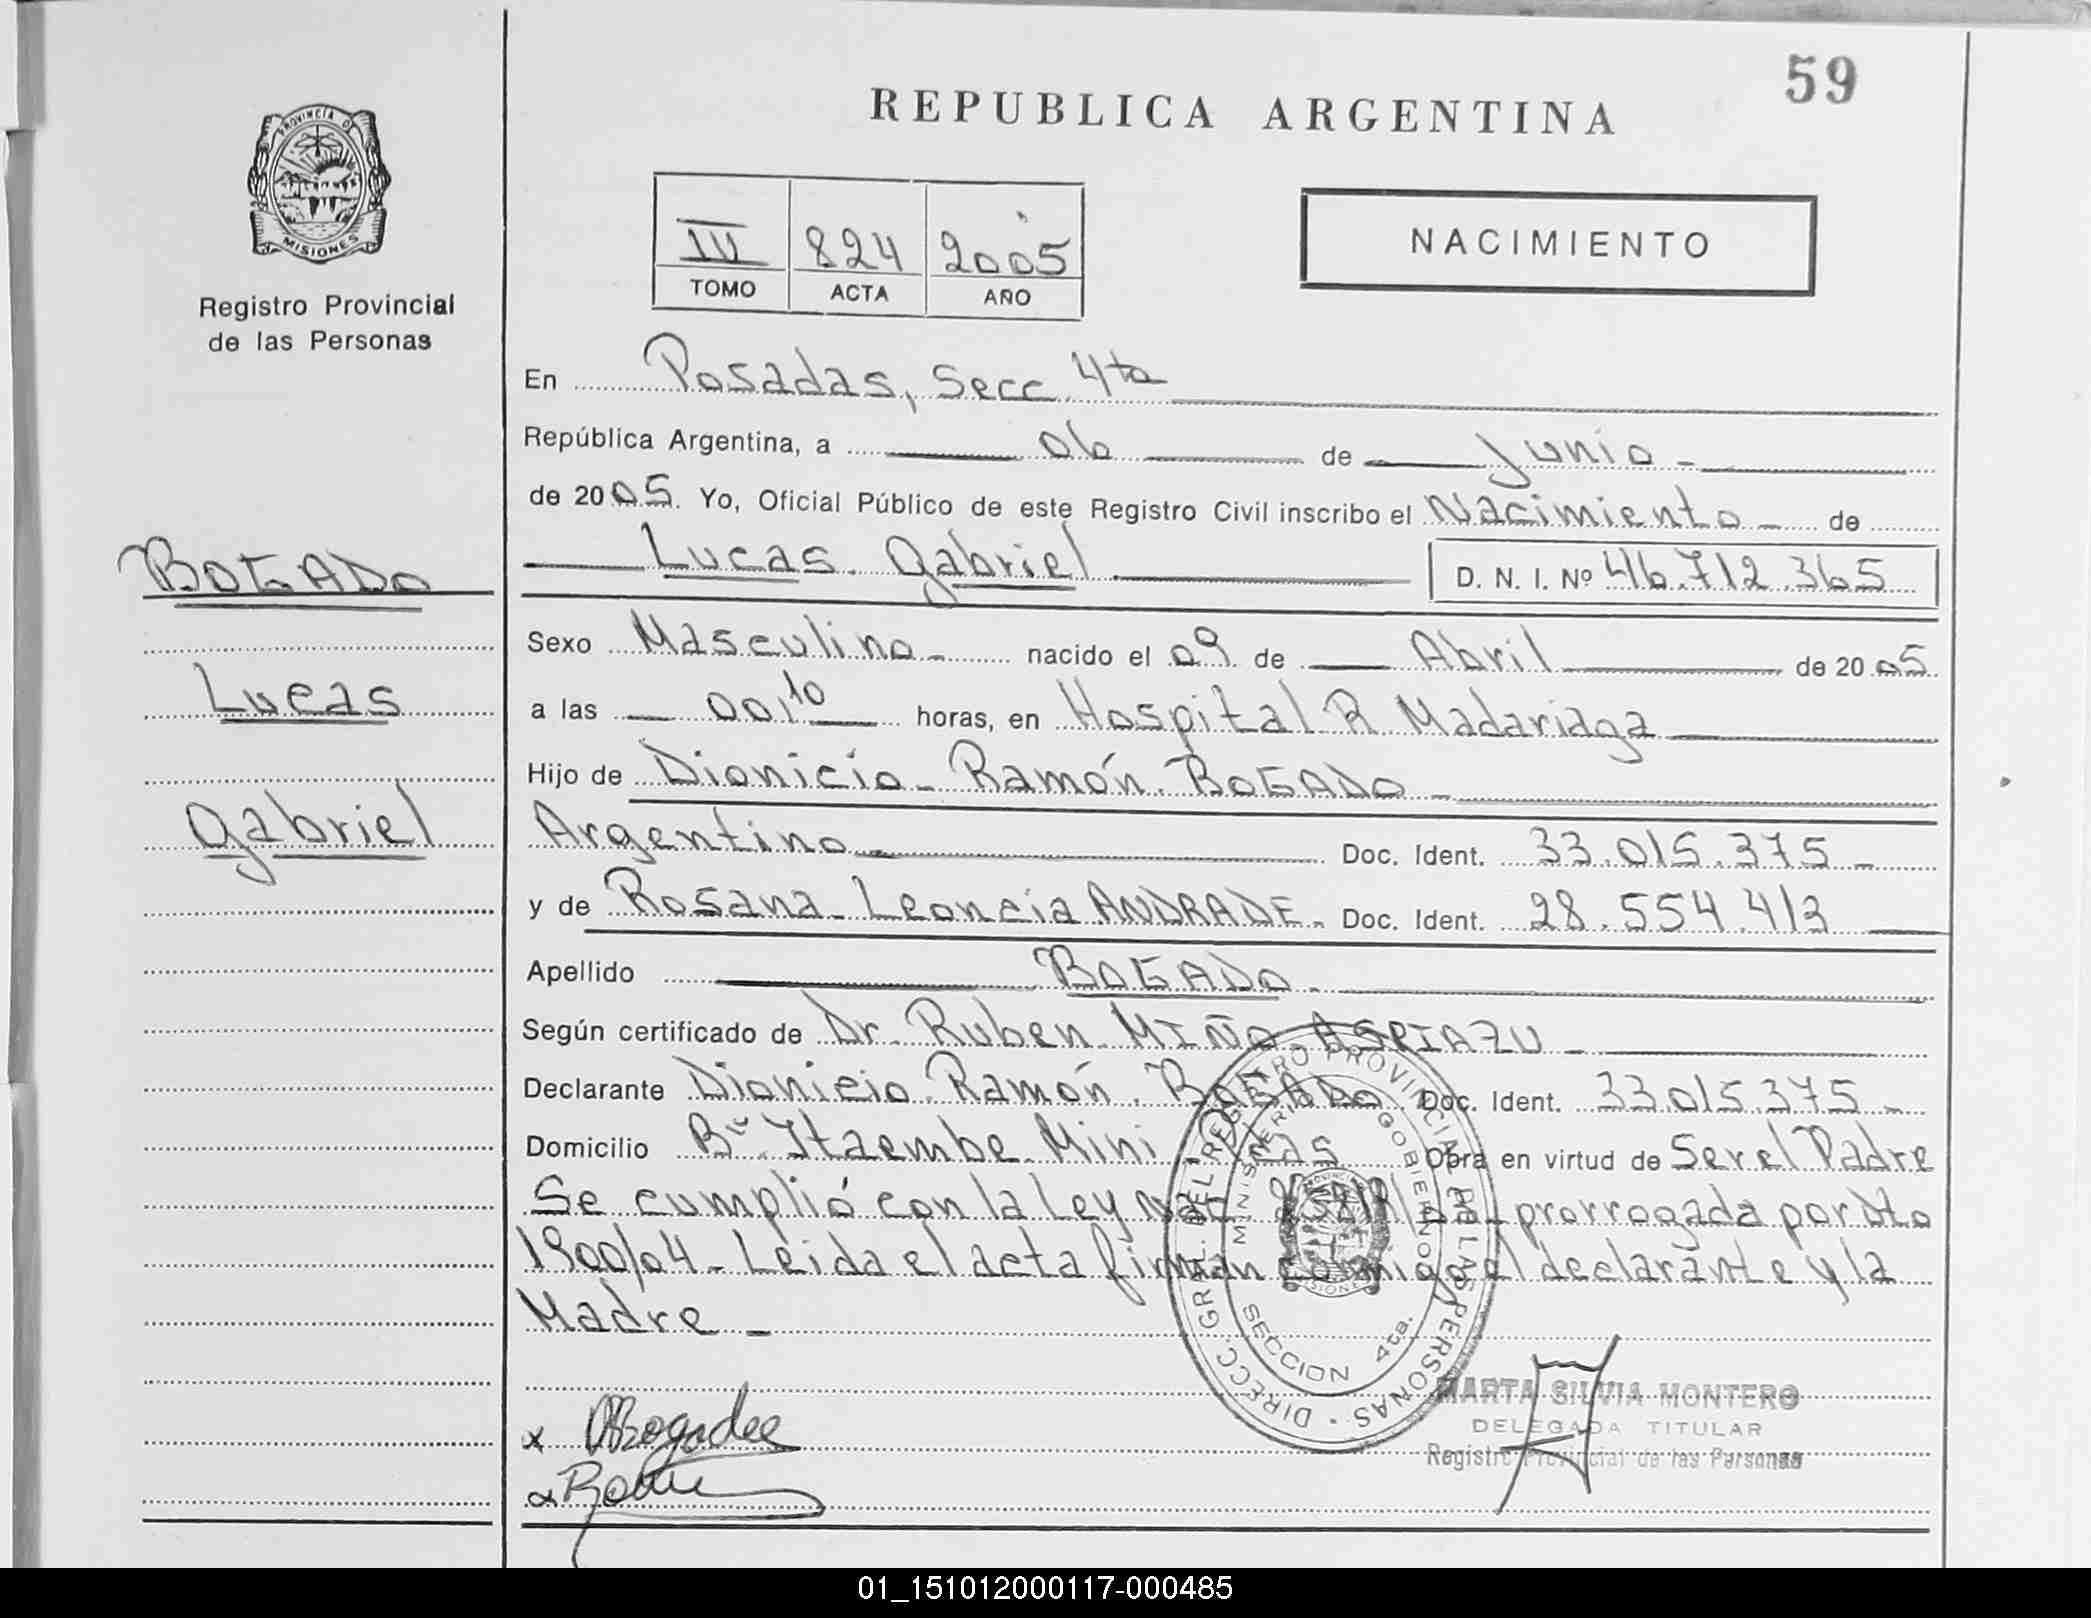 59
REPUBLICA ARGENTINA
PROVINCIA DE
MISIONES
Registro Provincial
de las Personas
IV 824 2005
TOMO ACTA AÑO
NACIMIENTO
En Posadas, Secc. 4ta
República Argentina, a 06 de Junio
de 2005. Yo, Oficial Público de este Registro Civil inscribo el Nacimiento de
Lucas Gabriel D. N. I. Nº 46.712.365
BOGADO
Lucas
Gabriel
Sexo Masculino nacido el 09 de Abril de 2005
a las 00,10 horas, en Hospital R. Madariaga
Hijo de Dionicio Ramón BOGADO
Argentino Doc. Ident. 33.015.375
y de Rosana Leoncia ANDRADE Doc. Ident. 28.554.413
Apellido BOGADO
Según certificado de Dr. Ruben MIÑO ASPIAZU
Declarante Dionicio Ramón BOGADO Doc. Ident. 33.015.375
Domicilio Bº Itaembe Mini Pdas Obra en virtud de Ser el Padre
Se cumplió con la Ley prorrogada por Dto
1900/04 - Leida el acta firman conmigo el declarante y la
Madre
DIRECC. GRAL. DEL REGISTRO PROVINCIAL DE LAS PERSONAS
MINISTERIO GOBIERNO
SECCION 4ta.
MARTA SILVIA MONTERO
DELEGADA TITULAR
Registro Provincial de las Personas
01_151012000117-000485